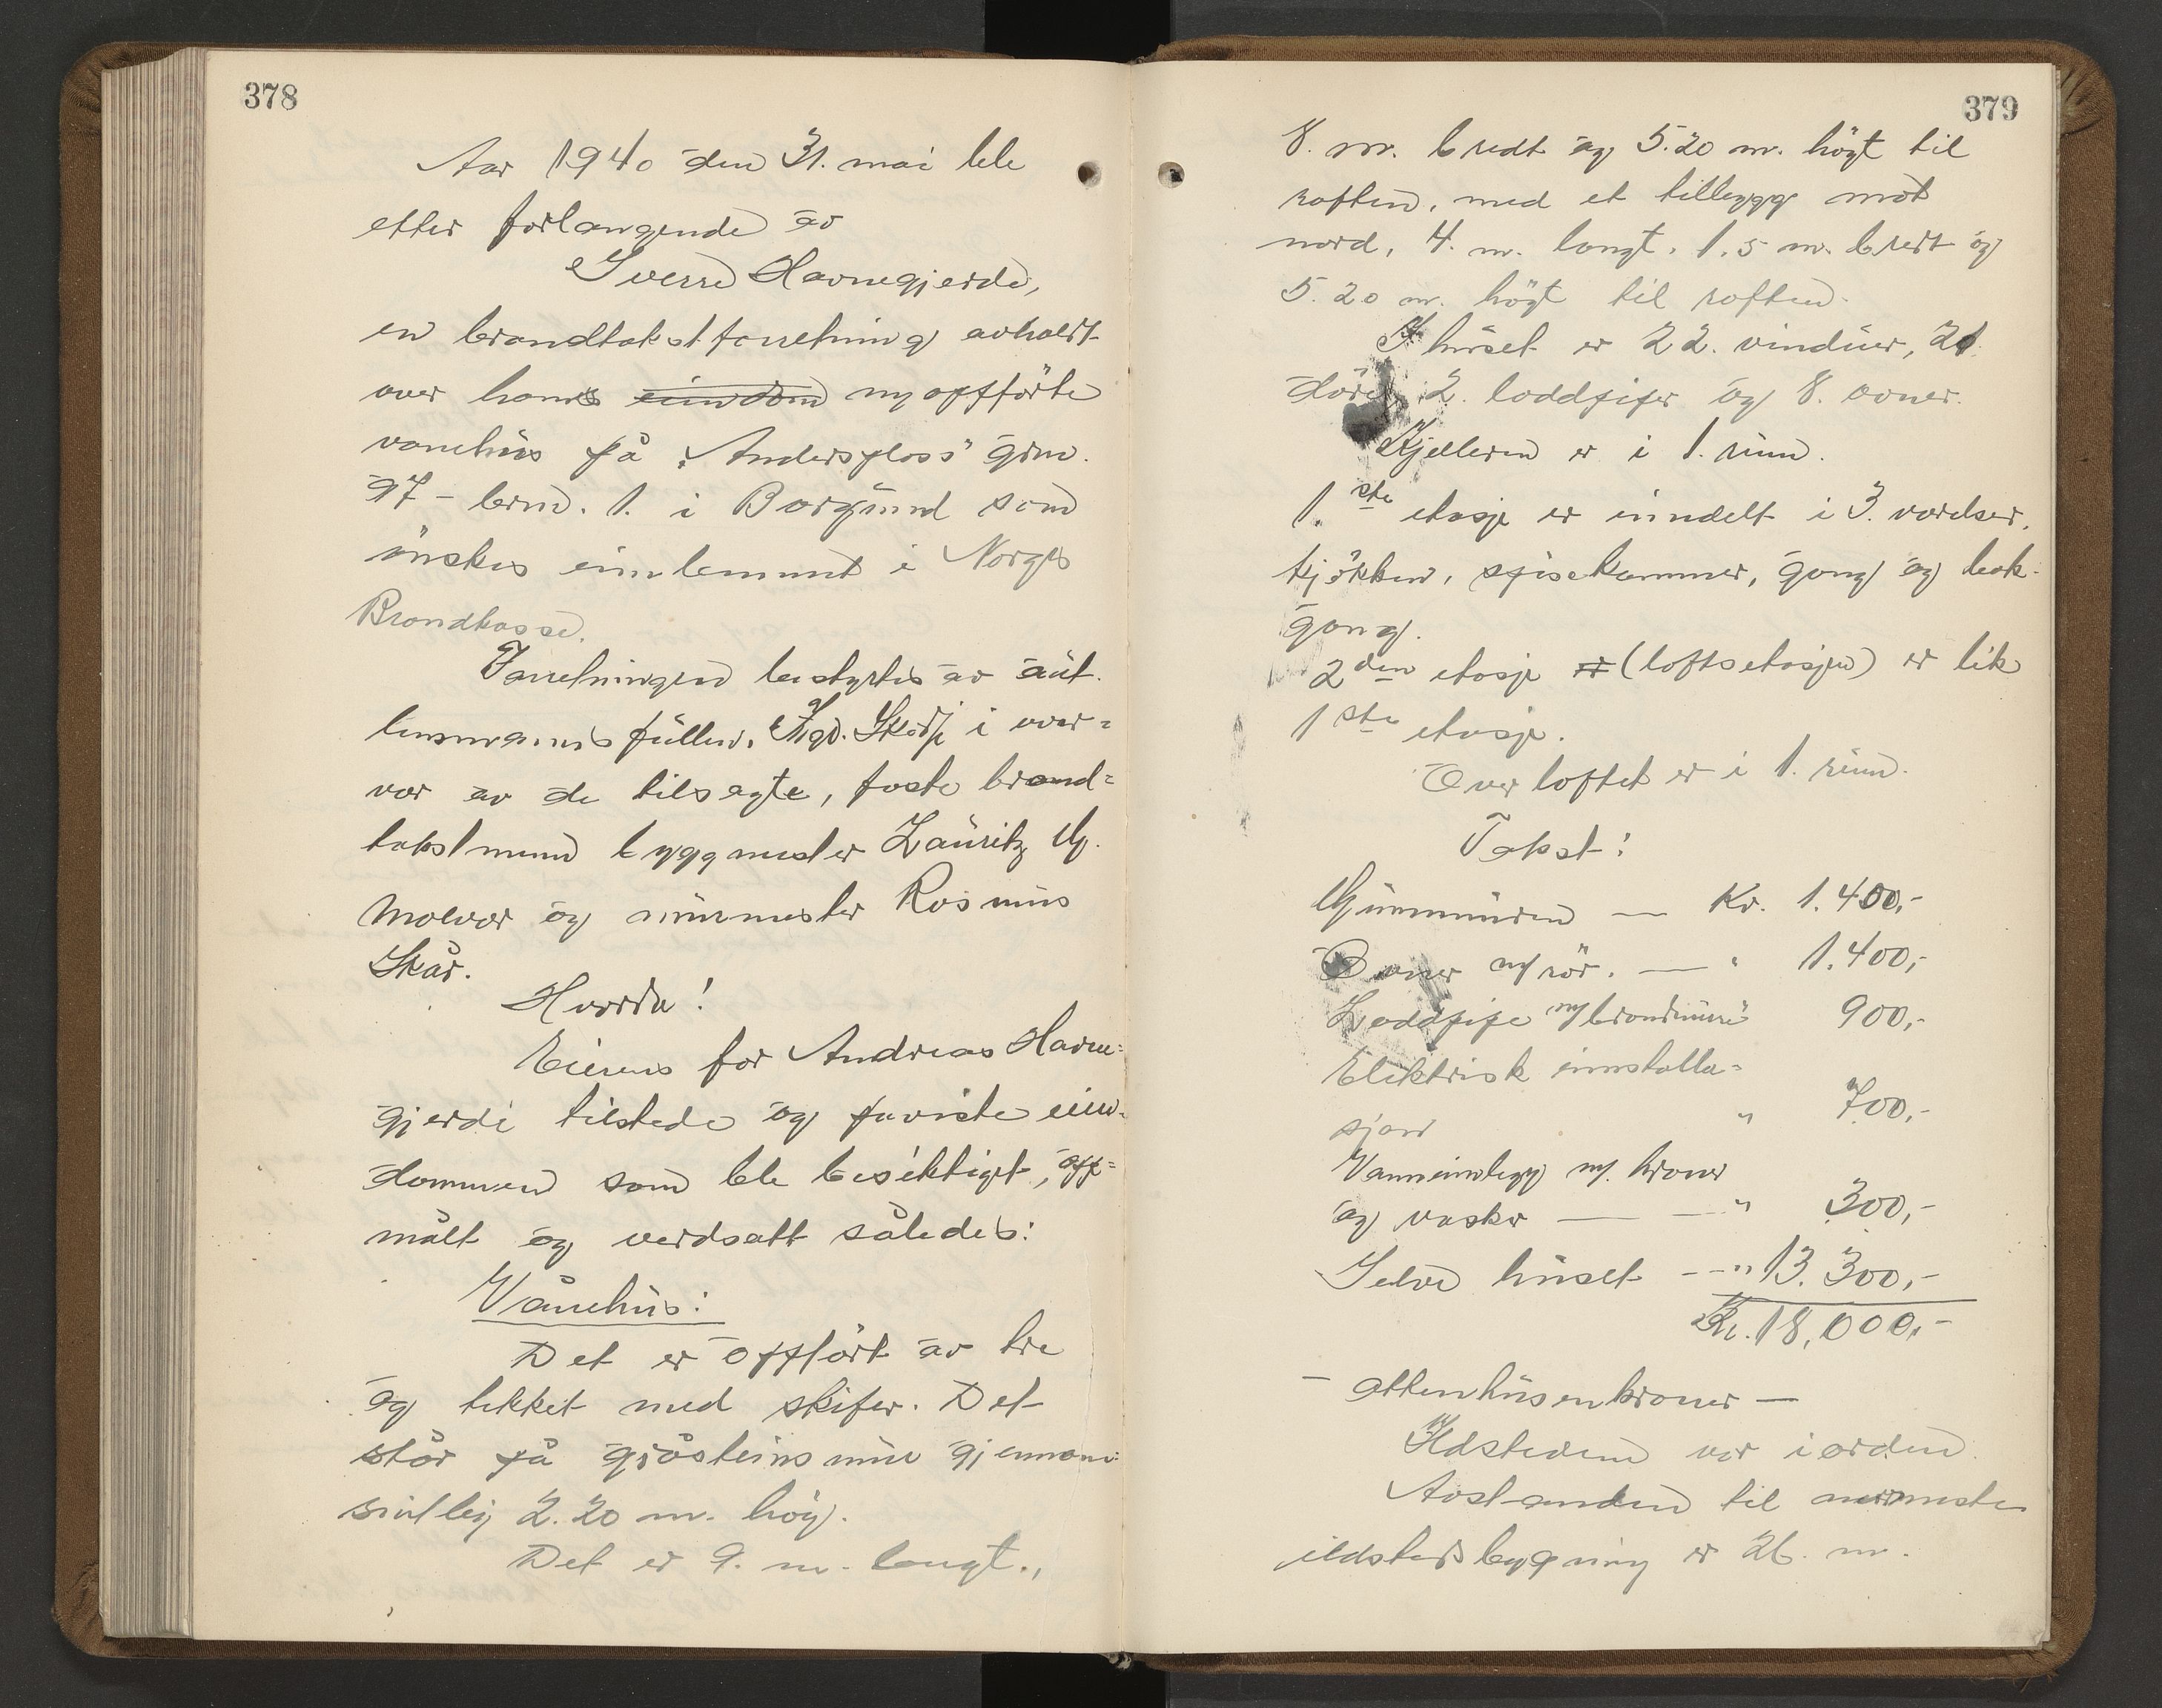 378
Aar 1940 den 31. mai ble
etter forlangende av
Sverre Havnegjerde,
en brandtakstforretning avholdt
over hans eiendom nyoppförte
vånehus på "Andersplass" grnr.
97 - brnr. 1. i Borgund som
önskes innlemmet i Norges
Brandkasse.
Forretningen bestyrtes av aut.
lensmannsfullm. Skodje i over=
vær av de tilsagte, faste brand=
takstmenn byggmester Lauritz M.
Molvær og murmester Rasmus
Skår.
Hvorda!
Eieren for Andreas Havne=
gjerde tilstede og paviste eien-
dommen som ble besiktiget, opp=
målt og verdsatt således:
Vånehus:
Det er oppfört av tre
og tekket med skifer. Det
står på gråsteinsmur gjennom-
snitlig 2.20 m. höy.
Det er 9. m. langt.,
379
8. m. bredt og 5.20 m. högt til
raften, med et tillegg mot
nord, 4. m. langt, 1.5 m. bredt og
5.20 m. högt til raften.
I huset er 22. vinduer, 21
dörer, 2. loddpiper og 8. ovner.
Kjelleren er i 1. rum.
1.ste etasje er inndelt i 3. værelser,
kjökken, spisekammer, gang og bak-
gang.
2den etasje er (loftsetasjen) er lik
1ste etasje.
Over loftet er i 1. rum.
Takst:
Grunnmuren — Kr. 1.400,-
Ovner m/rör. — " 1.400,-
Loddpipe m/brandmure " 900,-
Elektrisk innstalla=
sjon " 700,-
Vanninnlegg m. kraner
og vasker — — " 300,-
Selve huset --- " 13.300,-
Kr. 18,000,-
- attentusenkroner —
Ildstedene var i orden.
Avstanden til nærmeste
ildstedsbygning er 26. m.